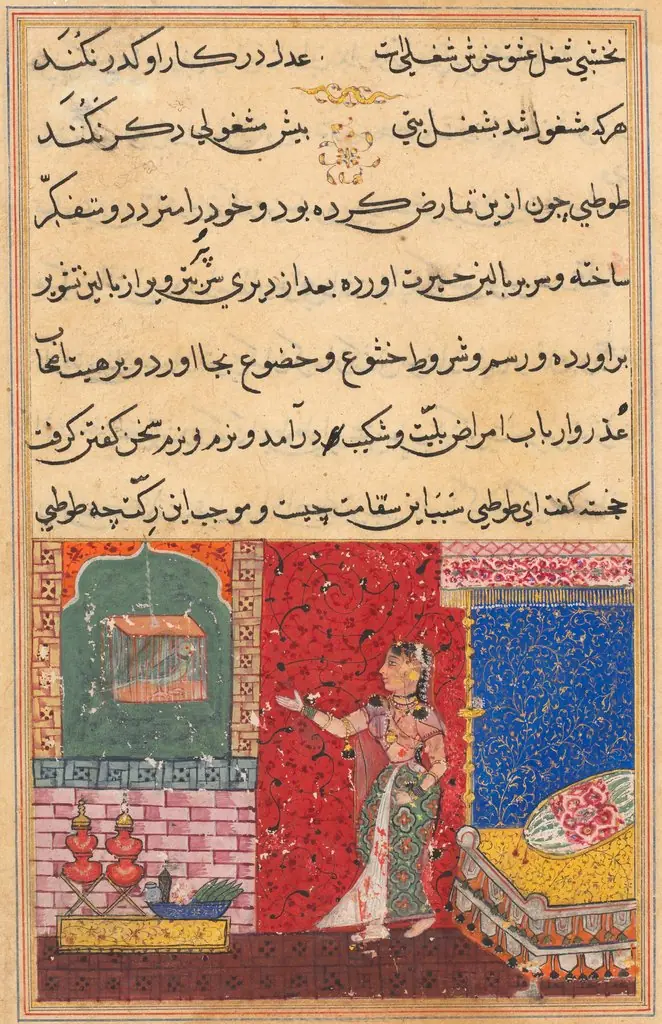 نخشبي شغل عشق خوش شغلي است عدل در كار او كدر نكند
هركه مشغول شد بشغل بتي بيش مشغولي دكر نكند
طوطي چون ازين تمارض كرده بود و خود را متردد و متفكر
ساخته و سر بر بالين حيرت اورده بعد از ديري سر پر تزوير از بالين تشوير
براورده و رسم و شروط خشوع و خضوع بجا اورد و بر هيئت اصحاب
عذر وار باب امراض بليت و شكيب در آمد و نرم و نرم سخن كفتن كرفت
خجسته كفت اي طوطي سبب اين سقامت چيست و موجب اين ركت چه طوطي